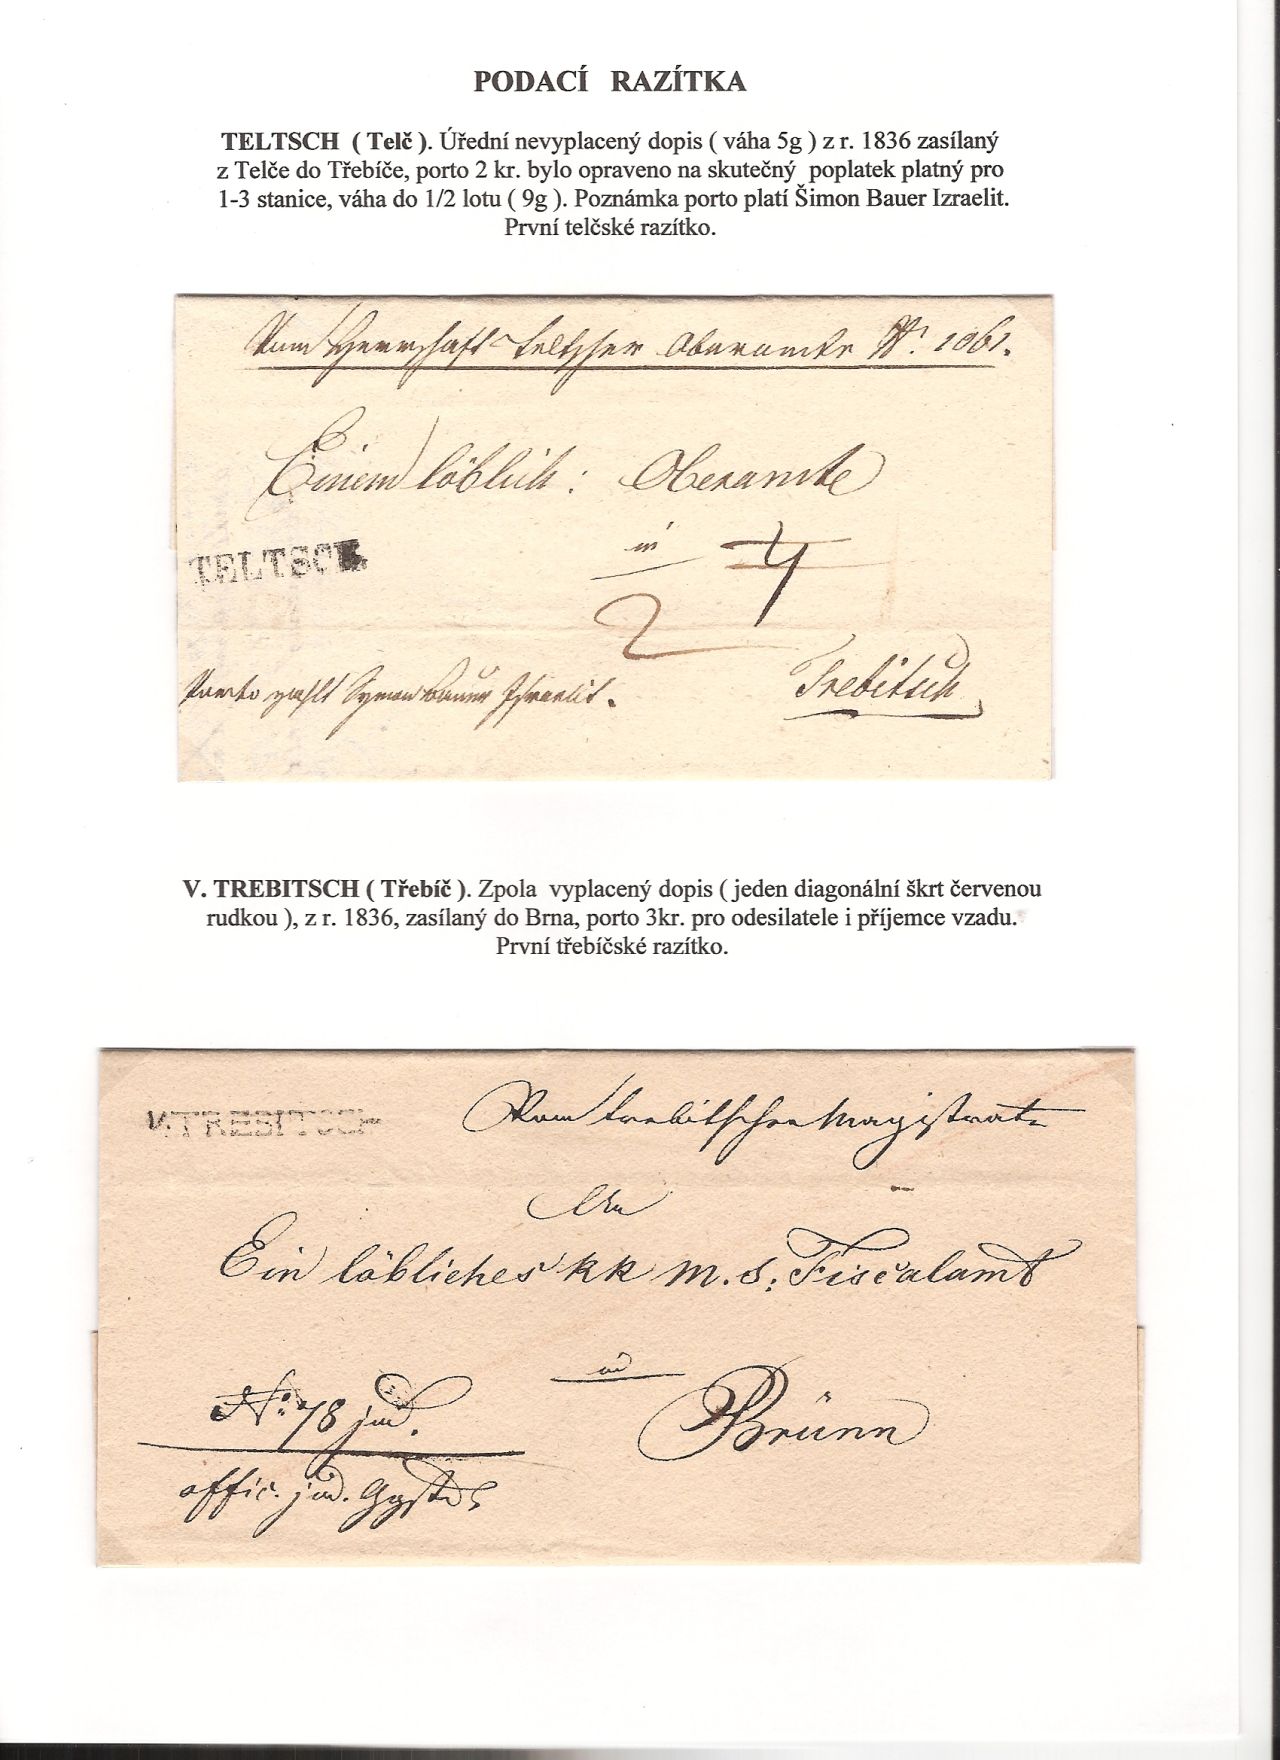 PODACÍ RAZÍTKA
TELTSCH ( Telč ). Úřední nevyplacený dopis ( váha 5g ) z r. 1836 zasílaný
z Telče do Třebíče, porto 2 kr. bylo opraveno na skutečný poplatek platný pro
1-3 stanice, váha do 1/2 lotu ( 9g ). Poznámka porto platí Šimon Bauer Izraelit.
První telčské razítko.
Vom Herrschaft Teltscher Oberamte N: 1061.
Einem löblich: Oberamte
TELTSCH
in 4
2
Porto zahlt Symon Bauer Israelit.
Trebitsch
V. TREBITSCH ( Třebíč ). Zpola vyplacený dopis ( jeden diagonální škrt červenou
rudkou ), z r. 1836, zasílaný do Brna, porto 3kr. pro odesilatele i příjemce vzadu.
První třebíčské razítko.
V.TREBITSCH
Vom Trebitscher Magistrate
An
Ein löbliches kk M. S. Fiscalamt
in
No: 78 jud.
Brünn
offic. jud.